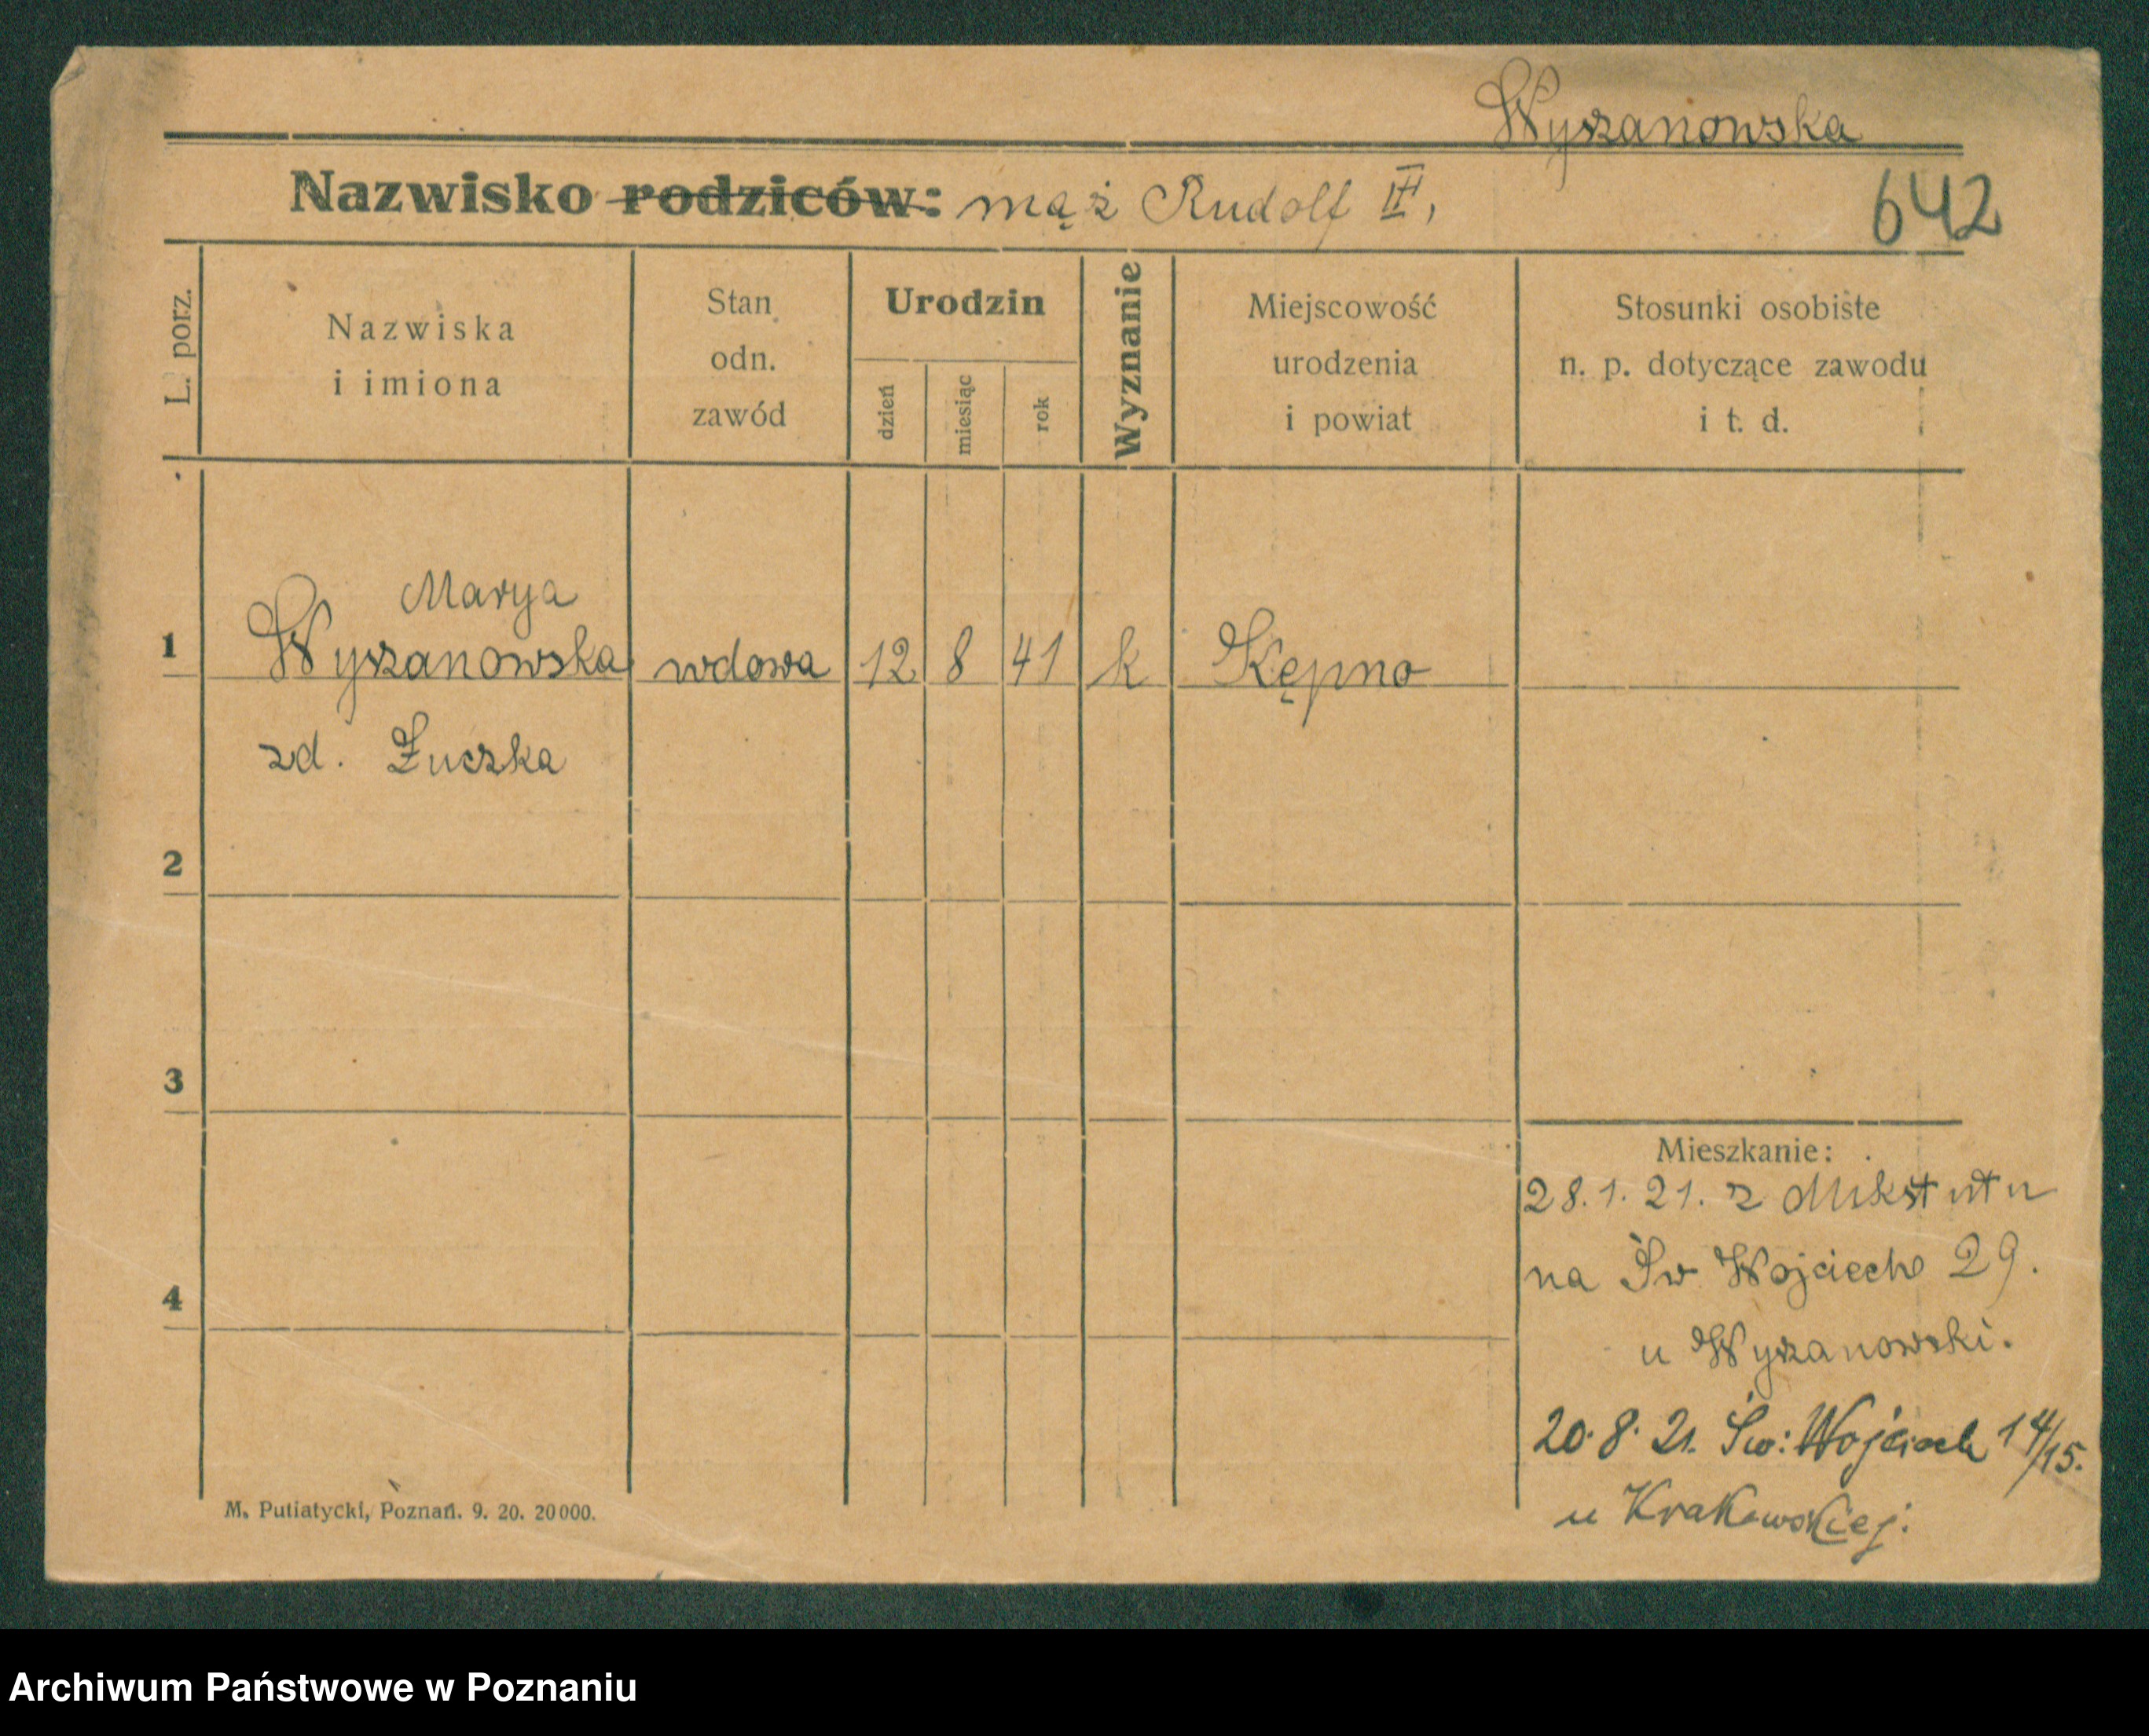 Wyszanowska
Nazwisko rodziców: mąż Rudolf III,
642
L. porz.
Nazwiska
i imiona
Stan
odn.
zawód
Urodzin
dzień
miesiąc
rok
Wyznanie
Miejscowość
urodzenia
i powiat
Stosunki osobiste
n. p. dotyczące zawodu
i t. d.
Marya
1 Wyszanowska wdowa 12 8 41 k Kępno
zd. Żuczka
2
3
4
Mieszkanie:
28.1.21. z Mikstatu
na Św Wojciech 29.
u Wyszanowski.
20.8.21. Św: Wojciech 14/15.
u Krakowskiej.
M. Putiatycki, Poznań. 9. 20. 20000.
Archiwum Państwowe w Poznaniu